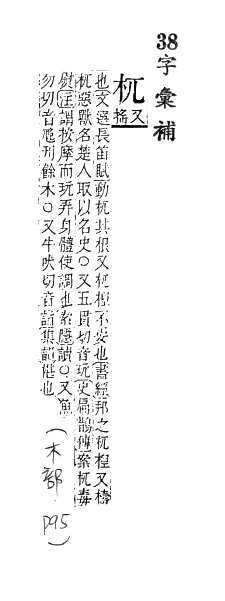 38 字彙補
杌
又搖
也文選長笛賦動杌其根又杌桯不安也書經邦之杌桯又檮
杌惡獸名楚人取以名史○又五貫切音玩史扁鵲傳案杌毒
熨註謂按摩而玩弄身體使調也索隱讀○又魚
勿切音刖餘木○又牛昳切音集韻也
(木部 P95)